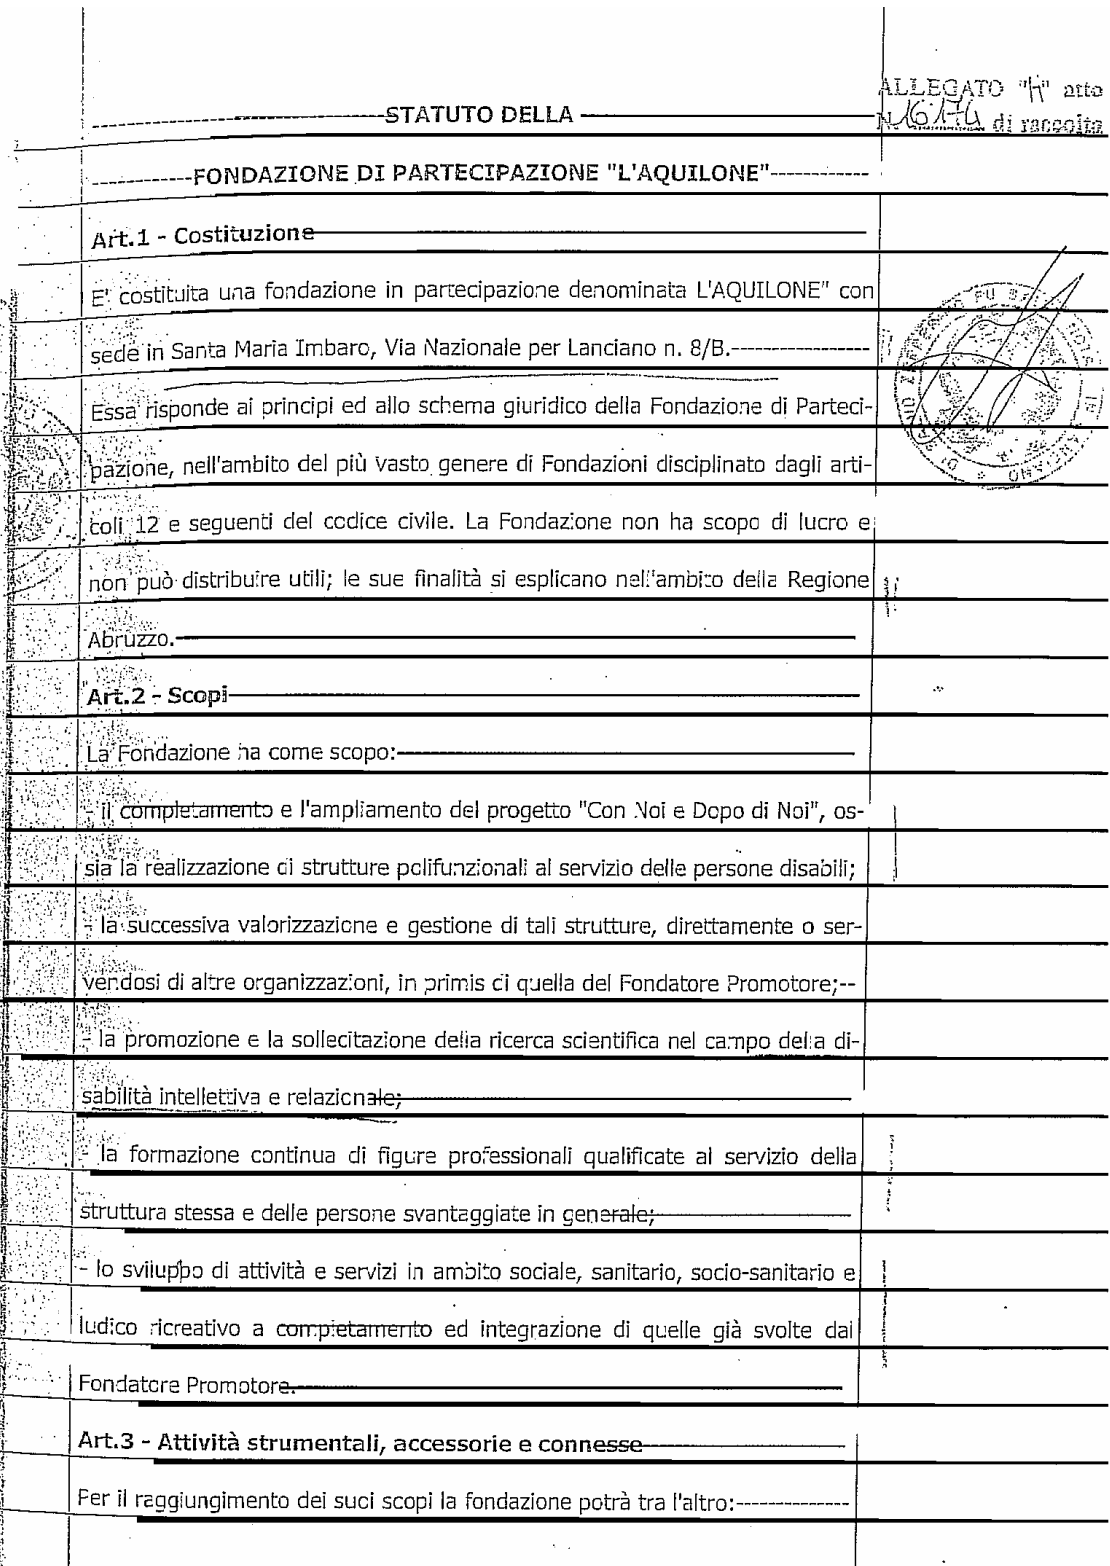 ALLEGATO "H" atto
N. 16174 di raccolta
STATUTO DELLA
FONDAZIONE DI PARTECIPAZIONE "L'AQUILONE"
Art.1 - Costituzione
E' costituita una fondazione in partecipazione denominata L'AQUILONE" con
sede in Santa Maria Imbaro, Via Nazionale per Lanciano n. 8/B.
Essa risponde ai principi ed allo schema giuridico della Fondazione di Parteci-
pazione, nell'ambito del più vasto genere di Fondazioni disciplinato dagli arti-
coli 12 e seguenti del codice civile. La Fondazione non ha scopo di lucro e
non può distribuire utili; le sue finalità si esplicano nell'ambito della Regione
Abruzzo.
Art.2 - Scopi
La Fondazione ha come scopo:
- il completamento e l'ampliamento del progetto "Con Noi e Dopo di Noi", os-
sia la realizzazione di strutture polifunzionali al servizio delle persone disabili;
- la successiva valorizzazione e gestione di tali strutture, direttamente o ser-
vendosi di altre organizzazioni, in primis di quella del Fondatore Promotore;--
- la promozione e la sollecitazione della ricerca scientifica nel campo della di-
sabilità intellettiva e relazionale;
- la formazione continua di figure professionali qualificate al servizio della
struttura stessa e delle persone svantaggiate in generale;
- lo sviluppo di attività e servizi in ambito sociale, sanitario, socio-sanitario e
ludico ricreativo a completamento ed integrazione di quelle già svolte dal
Fondatore Promotore.
Art.3 - Attività strumentali, accessorie e connesse
Per il raggiungimento dei suoi scopi la fondazione potrà tra l'altro: